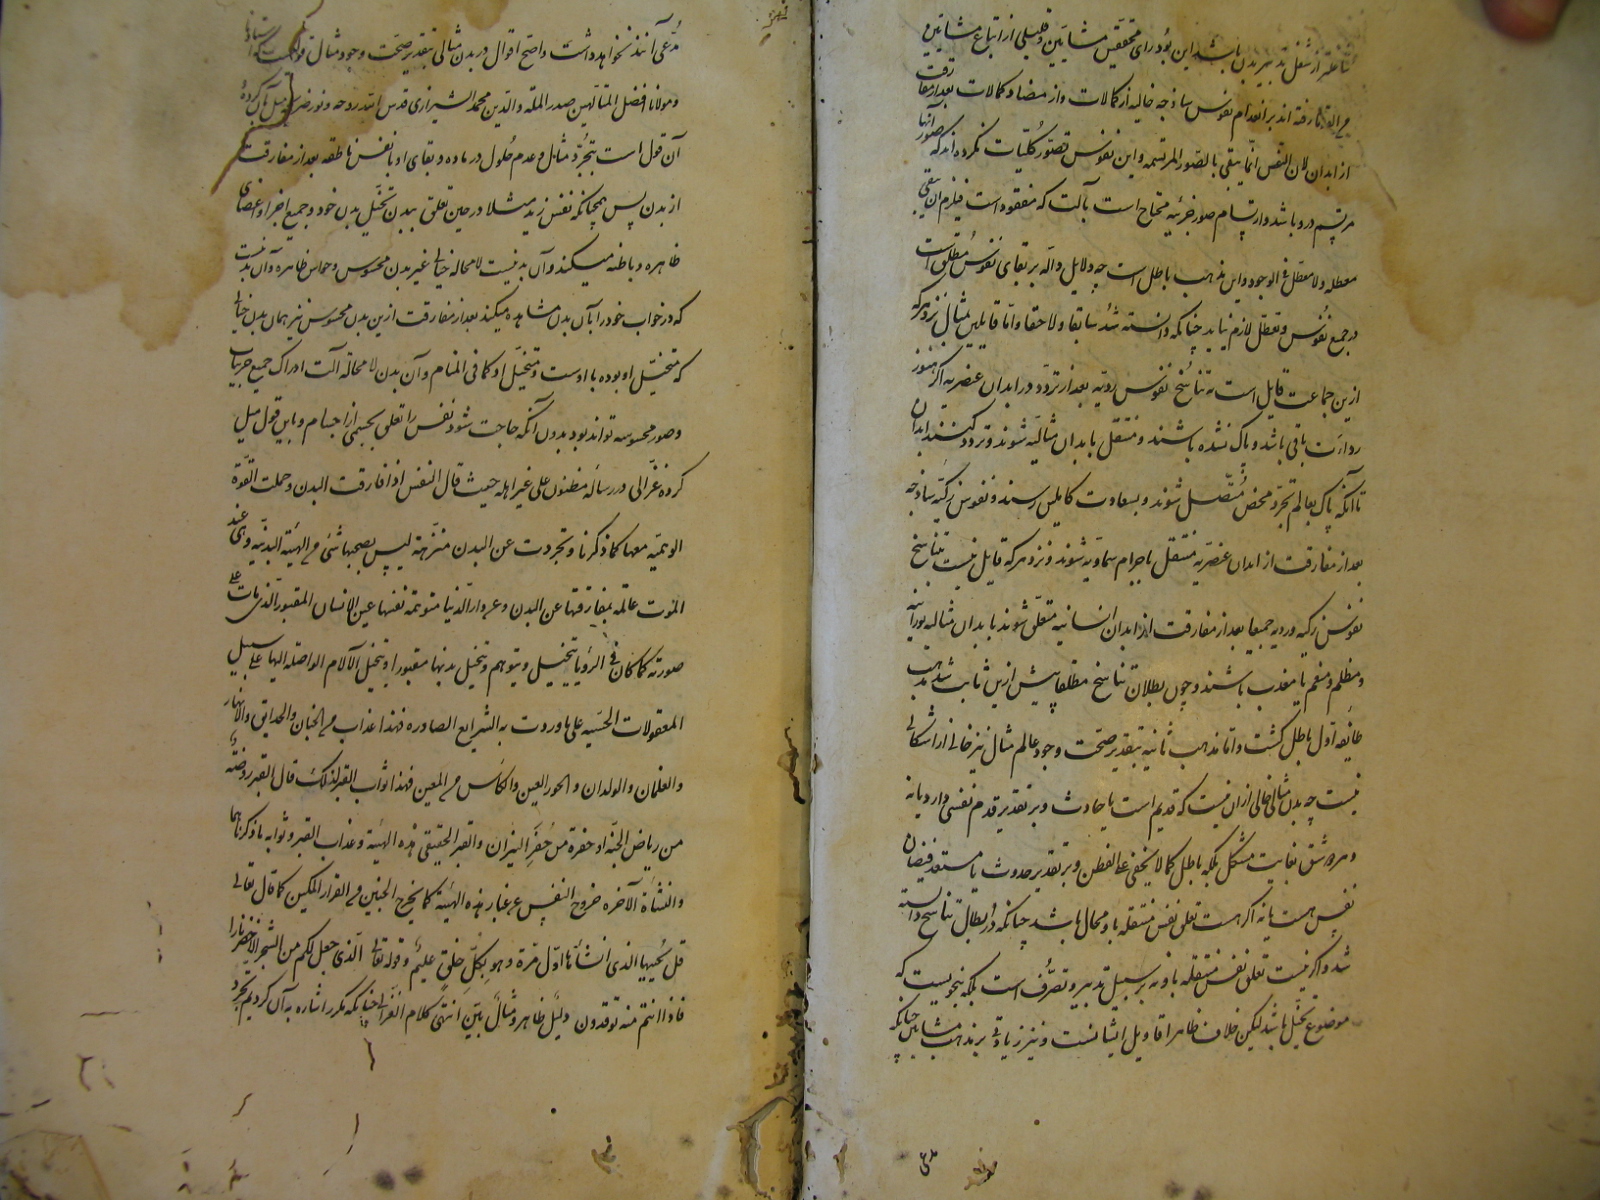 شاغله از شغل تدبیر بدن باشد این بود رای محققین مشائین و قلیلی از اتباع مشائین
رفته اند بر انعدام نفوس ساذجه خالیه از کمالات و از مضاد کمالات بعد از مفارقت
از ابدان لان النفس انما یبقی بالصور المرتسمه و این نفوس تصور کلیات نکرده اند که صور آنها
مرتسم در و باشد و ارتسام صور جزئیه محتاج است بآلت که مفقود است فیلزم ان یبقی
معطله و لا معطل فی الوجود و این مذهب باطل است چه دلایل داله بر بقای نفوس مطلق است
در جمیع نفوس و تعطل لازم نیاید چنانکه دانسته شد سابقا و لاحقا و اما قایلین بمثال نزد هر که
ازین جماعت قایل است به تناسخ نفوس ردیه بعد از تردد در ابدان عنصریه اگر هنوز
رداءت باقی باشد و پاک نشده باشند منتقل بابدان مثالیه شوند و تردد کنند در ابدان
تا آنکه پاک بعالم تجرد محض متصل شوند و بسعادت کاملین رسند و نفوس زکیه ساذجه
بعد از مفارقت از ابدان عنصریه منتقل باجرام سماویه شوند و نزد هر که قایل نیست بتناسخ
نفوس زکیه و ردیه جمیعا بعد از مفارقت از ابدان انسانیه متعلق شوند بابدان مثالیه نورانیه
و مظلم و منعم یا معذب باشند و چون بطلان تناسخ مطلقا پیش ازین ثابت شد مذهب
طایفه اول باطل گشت و اما مذهب ثانیه بتقدیر صحت وجود عالم مثال نیز خالی از اشکالی
نیست چه بدن مثالی خالی ازان نیست که قدیم است یا حادث و بر تقدیر قدم نفسی دارد یا نه
و هر دو شق بغایت مشکل بلکه باطل کما لا یخفی علی الفطن و بر تقدیر حدوث یا مستعد فیضان
نفس هست یا نه اگر هست تعلق نفس منتقله باو محال باشد چنانکه در ابطال تناسخ دانسته
شد و اگر نیست تعلق نفس منتقله باو نه بر سبیل تدبیر و تصرف است بلکه بنحویست که
موضوع تخیل باشد لیکن خلاف ظاهر اقاویل ایشانست و نیز زیادتی بر مذهب مشائین چنانکه
مدعی آنند نخواهد داشت و اصح اقوال در بدن مثالی بتقدیر صحت وجود مثال قولیست که استادنا
و مولانا افضل المتالهین صدر الملة والدین محمد الشیرازی قدس الله روحه و نور ضریحه میل بآن کرده
آن قول است بتجرد مثال و عدم حلول در ماده و بقای او با نفس ناطقه بعد از مفارقت
از بدن پس همچنانکه نفس زید مثلا در حین تعلق ببدن تخیل بدن خود و جمیع اجزا و اعضای
ظاهره و باطنه میکند و آن بدنیست لا محاله خیالی غیر بدن محسوس و حواس ظاهره و آن بدنیست
که در خواب خود را بآن بدن مشاهده میکند بعد از مفارقت ازین بدن محسوس نیز همان بدن خیالی
که متخیل او بوده با اوست و متخیل او کما فی المنام و آن بدن لا محاله آلت ادراک جمیع جزییات
و صور محسوسه تواند بود بدون آنکه حاجت شود نفس را تعلق بجسمی از اجسام و باین قول میل
کرده غزالی در رساله مضنون علی غیر اهله حیث قال النفس اذا فارقت البدن و حملت القوة
الوهمیه معها کما ذکرنا و تجردت عن البدن منزهة لیس یصحبها شئ من الهیئة البدنیه و هی عند
الموت عالمة بمفارقتها عن البدن و عن دار الدنیا متوهمة نفسها عین الانسان المقبور الذی مات علی
صورته کما کان فی الرؤیا یتخیل و یتوهم و تتخیل بدنها مقبورا و یتخیل الآلام الواصله الیها علی سبیل
المعقولات الحسیه علی ما وردت به الشرایع الصادره فهذا عذاب من الجنان والحدایق والانهار
والغلمان والولدان والحور العین والکأس من المعین فهذا ثواب القبر لذلک قال القبر روضة
من ریاض الجنة او حفرة من حفر النیران والقبر الحقیقی هذه الهیئة و عذاب القبر و ثوابه ما ذکرناهما
والنشأة الآخره خروج النفس عن غبار هذه الهیئة کما یخرج الجنین من القرار المکین کما قال تعالی
قل یحییها الذی انشأها اول مرة و هو بکل خلق علیم و قوله تعالی الذی جعل لکم من الشجر الاخضر نارا
فاذا انتم منه توقدون دلیل ظاهر و مثال بین انتهی کلام الغزالی چنانکه مکرر اشاره بآن کردیم تجرد